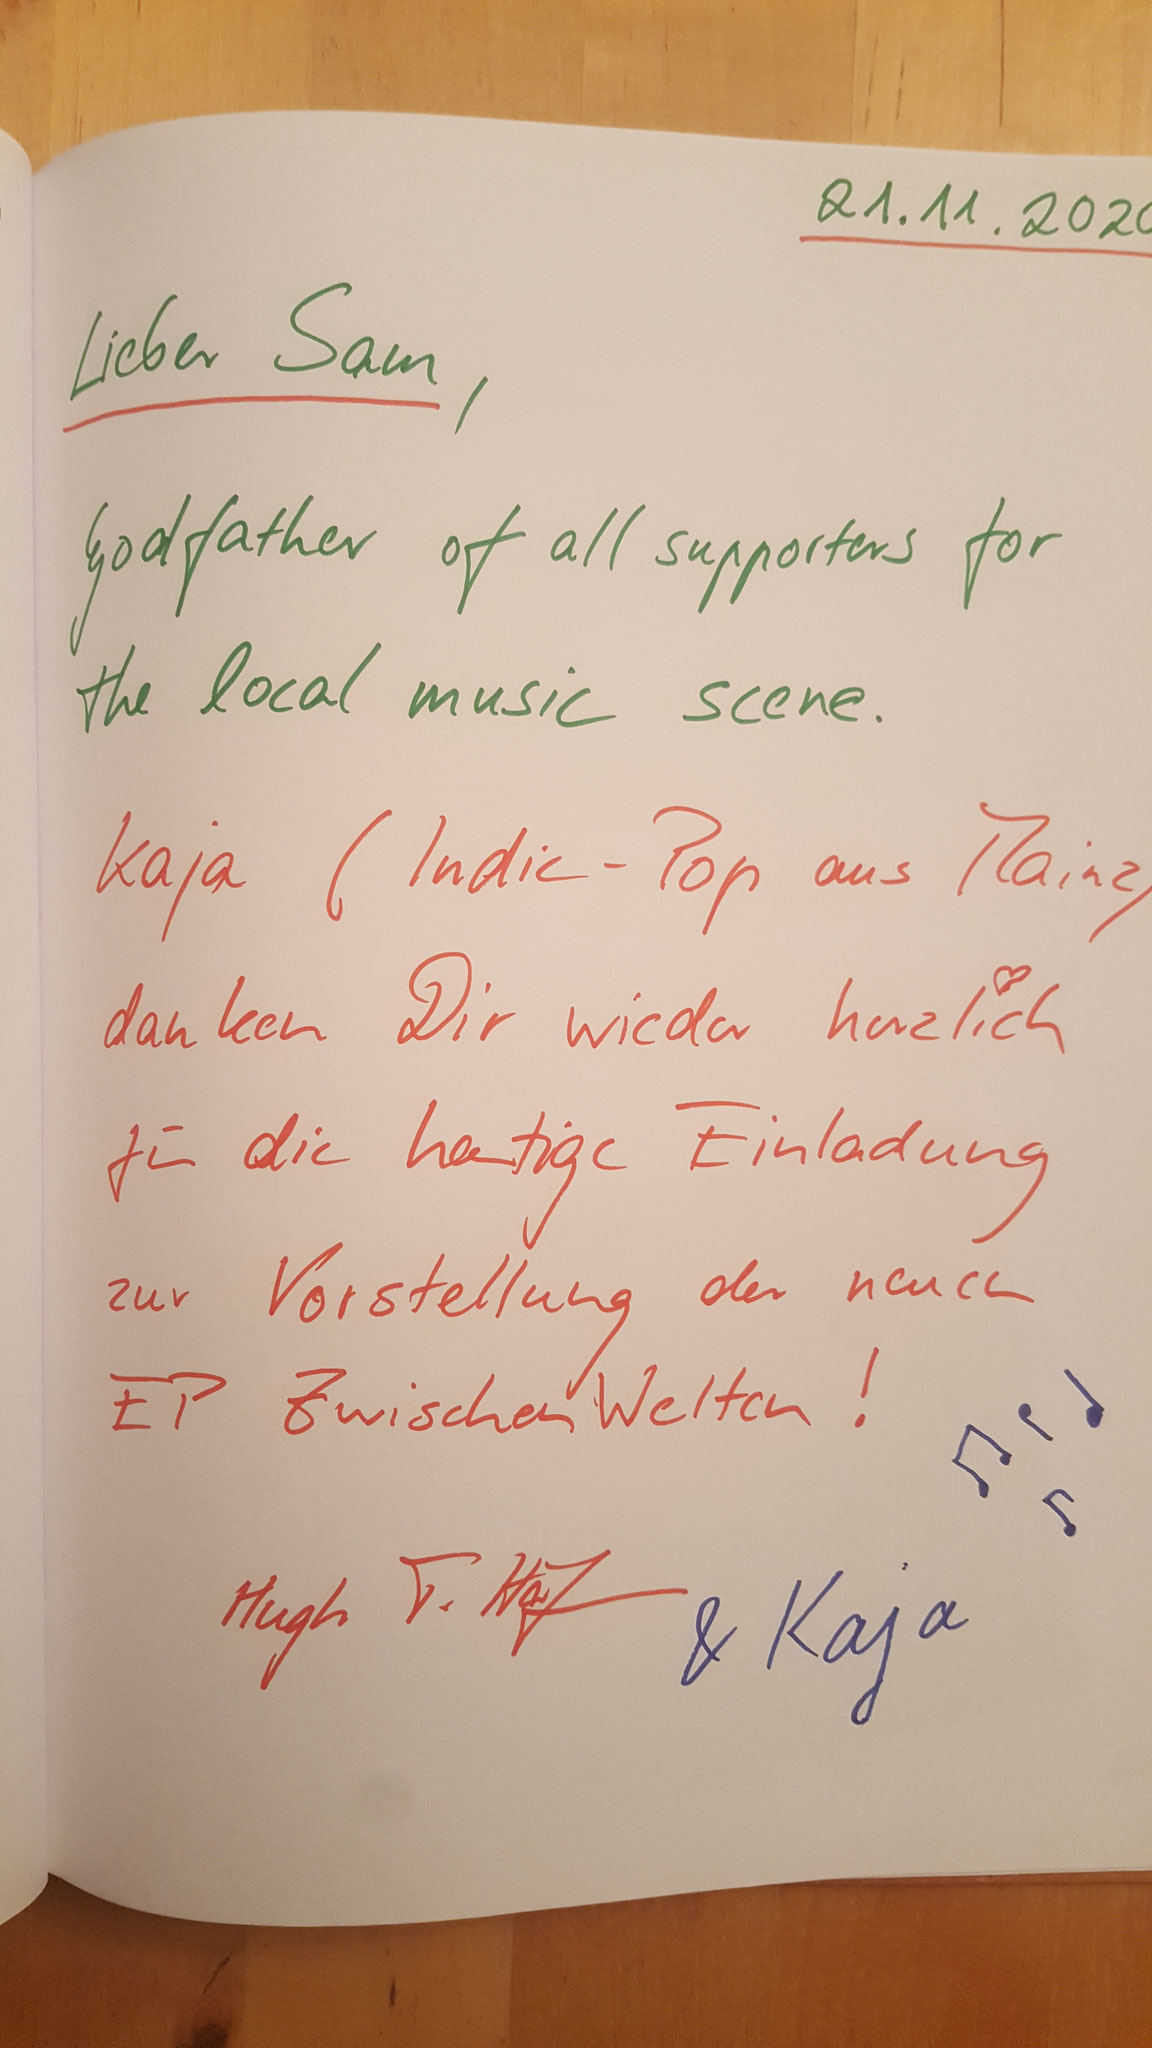 21.11.2020
Lieber Sam,
Godfather of all supporters for
the local music scene.
Kaja (Indie-Pop aus Mainz)
danken Dir wieder herzlich
für die heutige Einladung
zur Vorstellung der neuen
EP ZwischenWelten!
Hugh T.
& Kaja